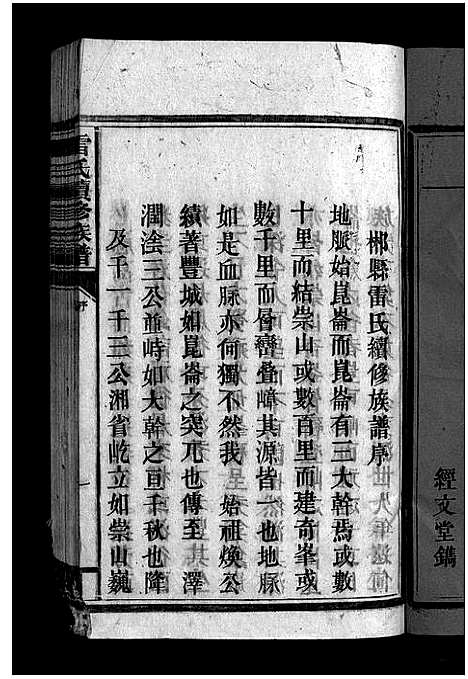 經文堂鐫
郴縣雷氏續修族譜序
地脈始崑崙而崑崙有三大幹焉或數
十里而結崇山或數百里而建奇峯或
數千里而層巒叠嶂其源皆一也地脉
如是血脉亦何獨不然我 始祖煥公
績著豐城如崑崙之突兀也傳至 澤
潤淦三公並峙如大幹之亘千秋也降
及千一千三公湘省屹立如崇山巍
雷氏續修族譜
序